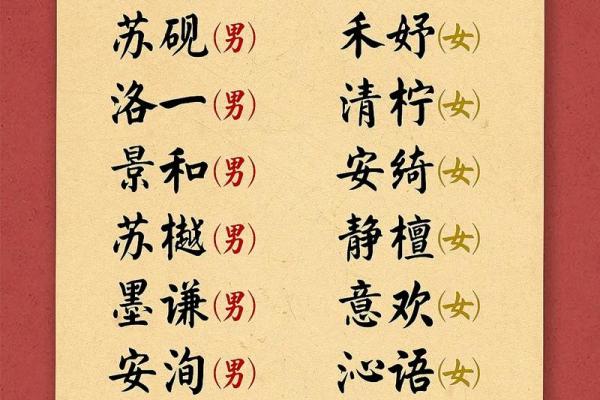 苏砚(男) 禾妤(女)
洛一(男) 清柠(女)
景和(男) 安绮(女)
苏樾(男) 静檀(女)
墨谦(男) 意欢(女)
安洵(男) 沁语(女)